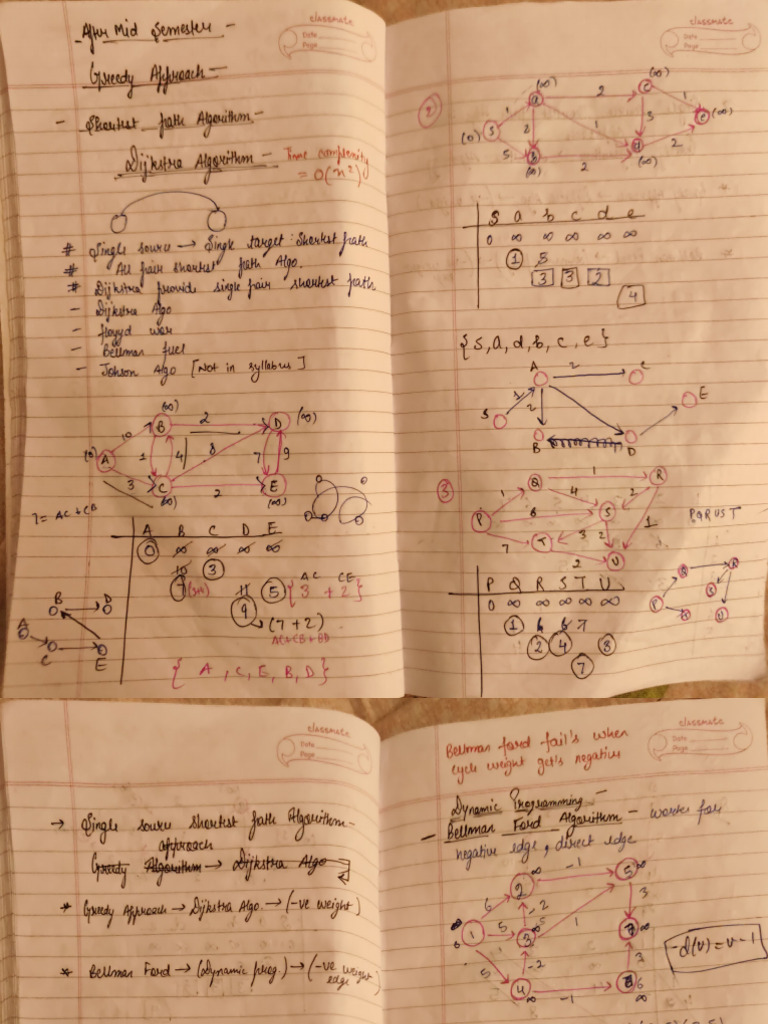 classmate
Date
Page
After Mid Semester -
Greedy Approach -
- Shortest path Algorithm -
Dijkstra Algorithm - Time complexity
= O(n²)
# Single source → Single target Shortest path
# All pair shortest path Algo.
# Dijkstra provide single pair shortest path
- Dijkstra Algo
- floyyd war
- Bellman fuel
- Johson Algo [Not in syllabus]
(∞) (∞)
B 2 D
10
(0) A 1 4 8 7 9
3 C 2 E
(∞) (∞)
7 = AC + CB
A B C D E
0 ∞ ∞ ∞ ∞
10 3
7 11 5 { AC 3 + CE 2 }
9 → (7 + 2)
AC+CB+BD
B D
A C E
{ A, C, E, B, D }
classmate
Date
Page
2
(∞) 2 (∞)
a c
1 1
(0) S 2 1 3 e (∞)
5 b 2 d 2
(∞) (∞)
S a b c d e
0 ∞ ∞ ∞ ∞ ∞
1 5
3 3 2
4
{S, a, d, b, c, e}
A 2 C
1 2 E
S
B D
3
Q 1 R
1 4 2
P 6 S 1
7 3 2
T 2 U
PQRUST
P Q R S T U
0 ∞ ∞ ∞ ∞ ∞
1 6 6 7
2 4 8
7
classmate
Date
Page
→ Single source shortest path Algorithm -
approach
Greedy Algorithm → Dijkstra Algo
* Greedy Approach → Dijkstra Algo. → (-ve weight)
* Bellman Ford → (Dynamic prog.) → (-ve weight
edge)
classmate
Date
Page
Bellman ford fail's when
cycle weight get's negative
Dynamic Programming -
- Bellman Ford Algorithm - works for
negative edge, direct edge
2 ∞ -1 5 ∞
6 -2 3
1 5 3 1 7 ∞
5 -2 3
4 -1 6
∞ ∞
-d(v) = v - 1